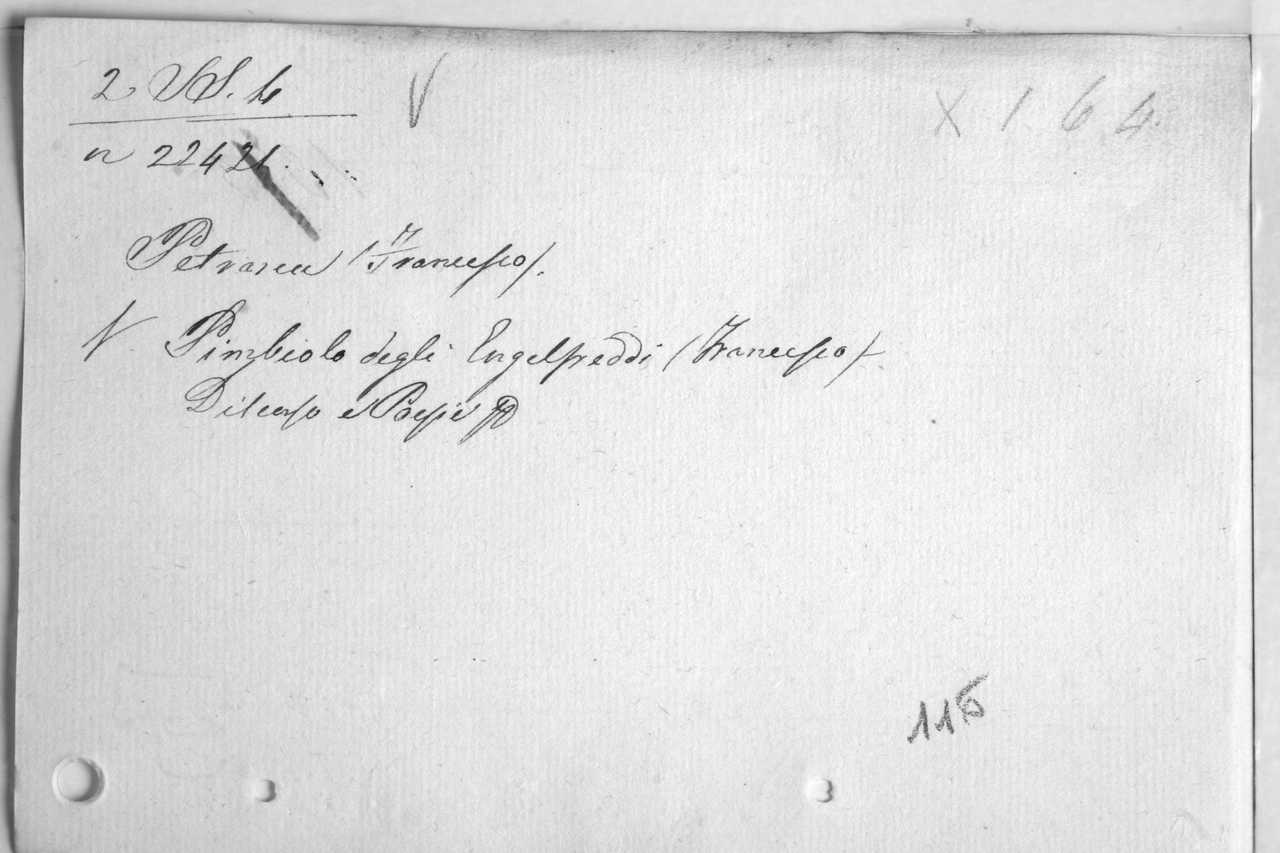 2 SS. 4
V
X 164.
n 2242
Petrarca (Francesco).
V. Pimbiolo degli Engelfreddi (Francesco)
Discorso e Poesie
115